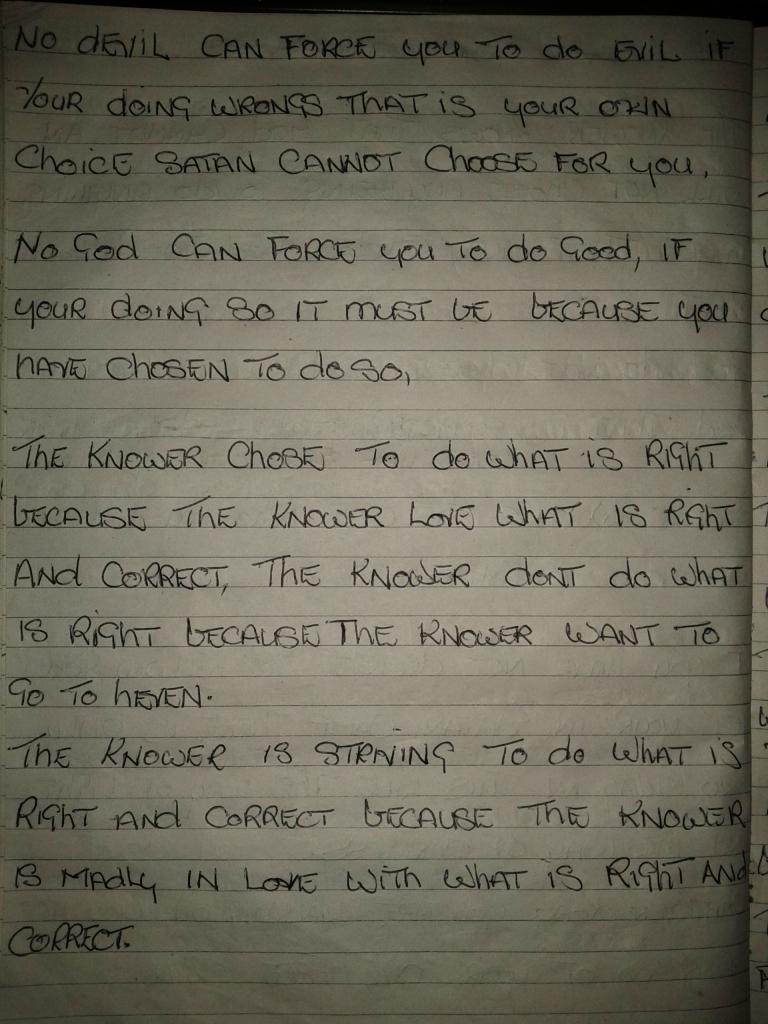 NO dEVIL CAN FORCE you TO do EVIL IF
YOUR doiNG WRONGS THAT iS YOUR OWN
CHOiCE SATAN CANNOT CHOOSE FOR you,
No God CAN FORCE you To do Good, IF
YOUR doiNG SO IT MUST bE bECAUSE you
hAVE CHOSEN To do SO,
THE KNOWER CHOSE TO do WHAT iS RiGhT
bECAUSE THE KNOWER LOVE WHAT IS RiGHT
ANd CORRECT, THE KNOWER dONT do WHAT
IS RiGHT bECAUSE THE KNOWER WANT TO
GO TO hEVEN.
THE KNOWER IS STRIVING TO do WHAT iS
RiGhT ANd CORRECT bECAUSE THE KNOWER
IS MAdLy IN LOVE WiTh WHAT iS RiGhT ANd
CORRECT.